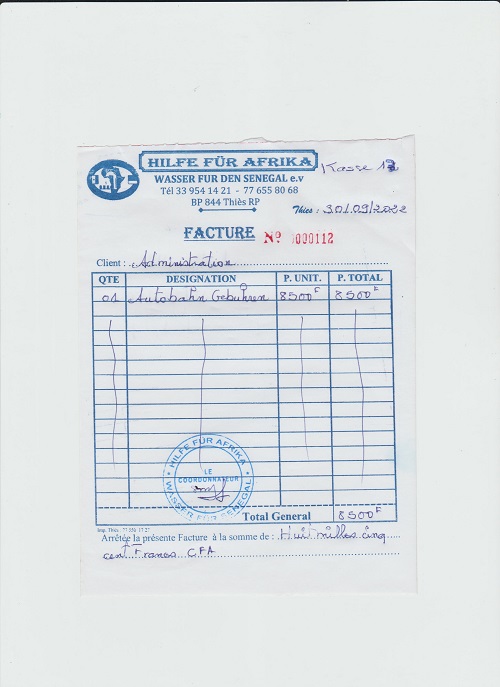 HILFE FÜR AFRIKA
Kasse
WASSER FUR DEN SENEGAL e.v
Tél 33 954 14 21 - 77 655 80 68
BP 844 Thiès RP
Thies : 30/09/2022
FACTURE Nº 0000112
Client : Administration
QTE DESIGNATION P. UNIT. P. TOTAL
01 Autobahn Gebühren 8500F 8500F
HILFE FÜR AFRIKA
LE
COORDONNATEUR
WASSER FÜR SENEGAL
Total General 8500F
Imp. Thiès 77 556 17 27
Arrêtée la présente Facture à la somme de : Huit milles cinq
cent Francs CFA